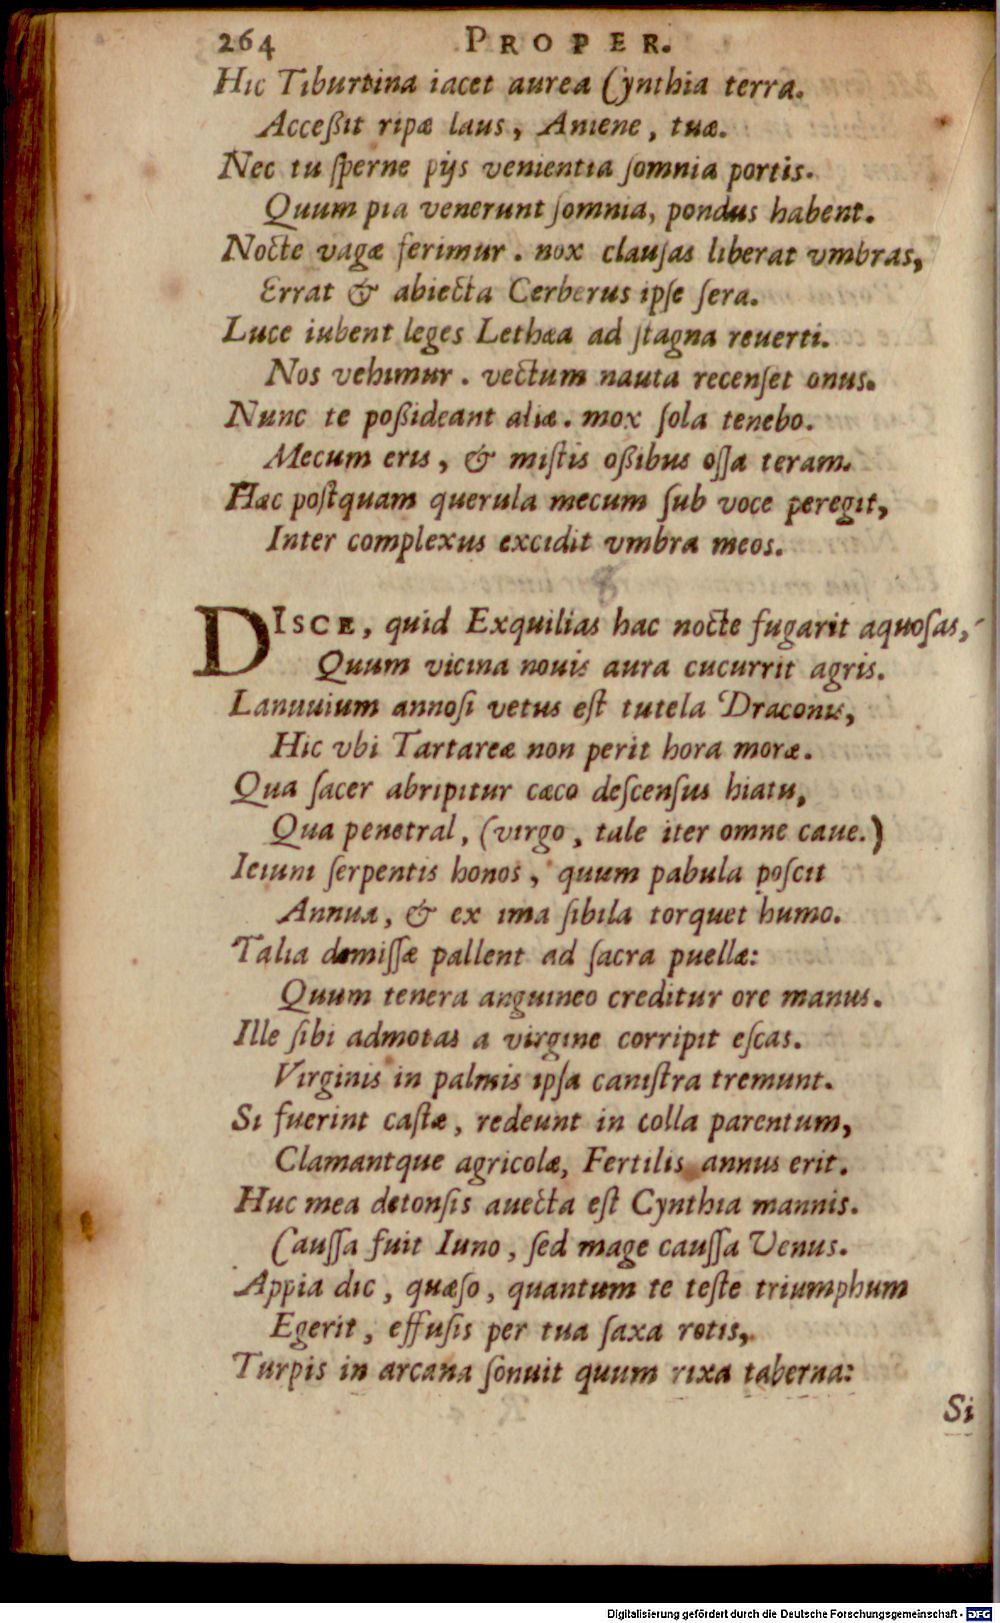 264 PROPER.
Hic Tiburtina iacet aurea Cynthia terra.
Acceßit ripæ laus, Aniene, tuæ.
Nec tu ſperne pijs venientia ſomnia portis.
Quum pia venerunt ſomnia, pondus habent.
Nocte vagæ ferimur. nox clauſas liberat vmbras,
Errat & abiecta Cerberus ipſe ſera.
Luce iubent leges Lethæa ad ſtagna reuerti.
Nos vehimur. vectum nauta recenſet onus.
Nunc te poßideant aliæ. mox ſola tenebo.
Mecum eris, & miſtis oßibus oſſa teram.
Hæc poſtquam querula mecum ſub voce peregit,
Inter complexus excidit vmbra meos.
8
DISCE, quid Exquilias hac nocte fugarit aquoſas,
Quum vicina nouis aura cucurrit agris.
Lanuuium annoſi vetus eſt tutela Draconis,
Hic vbi Tartareæ non perit hora moræ.
Qua ſacer abripitur cæco deſcenſus hiatu,
Qua penetral, (virgo, tale iter omne caue.)
Ieiuni ſerpentis honos, quum pabula poſcit
Annua, & ex ima ſibila torquet humo.
Talia demiſſæ pallent ad ſacra puellæ:
Quum tenera anguineo creditur ore manus.
Ille ſibi admotas a virgine corripit eſcas.
Virginis in palmis ipſa caniſtra tremunt.
Si fuerint caſtæ, redeunt in colla parentum,
Clamantque agricolæ, Fertilis annus erit.
Huc mea detonſis auecta eſt Cynthia mannis.
Cauſſa fuit Iuno, ſed mage cauſſa Venus.
Appia dic, quæſo, quantum te teſte triumphum
Egerit, effuſis per tua ſaxa rotis,
Turpis in arcana ſonuit quum rixa taberna:
Si
Digitalisierung gefördert durch die Deutsche Forschungsgemeinschaft - DFG